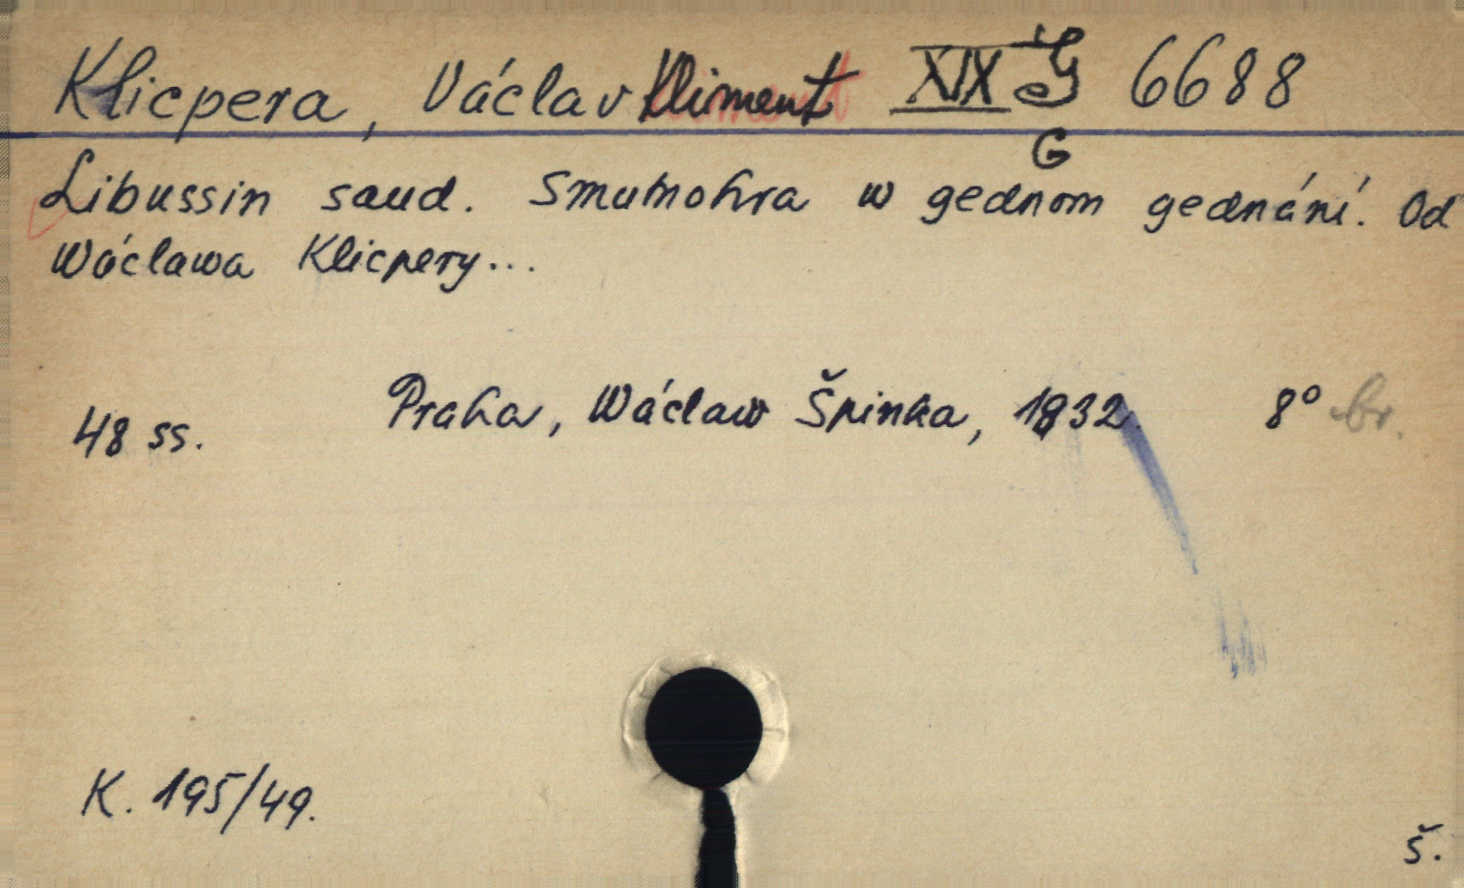 Klicpera, Václav Kliment XIX G 6688
G
Libussin saud. Smutnohra w gednom gednání. Od
Wáclawa Klicpery...
Praha, Wáclaw Špinka, 1832. 8° br.
48 ss.
K. 195/49.
š.